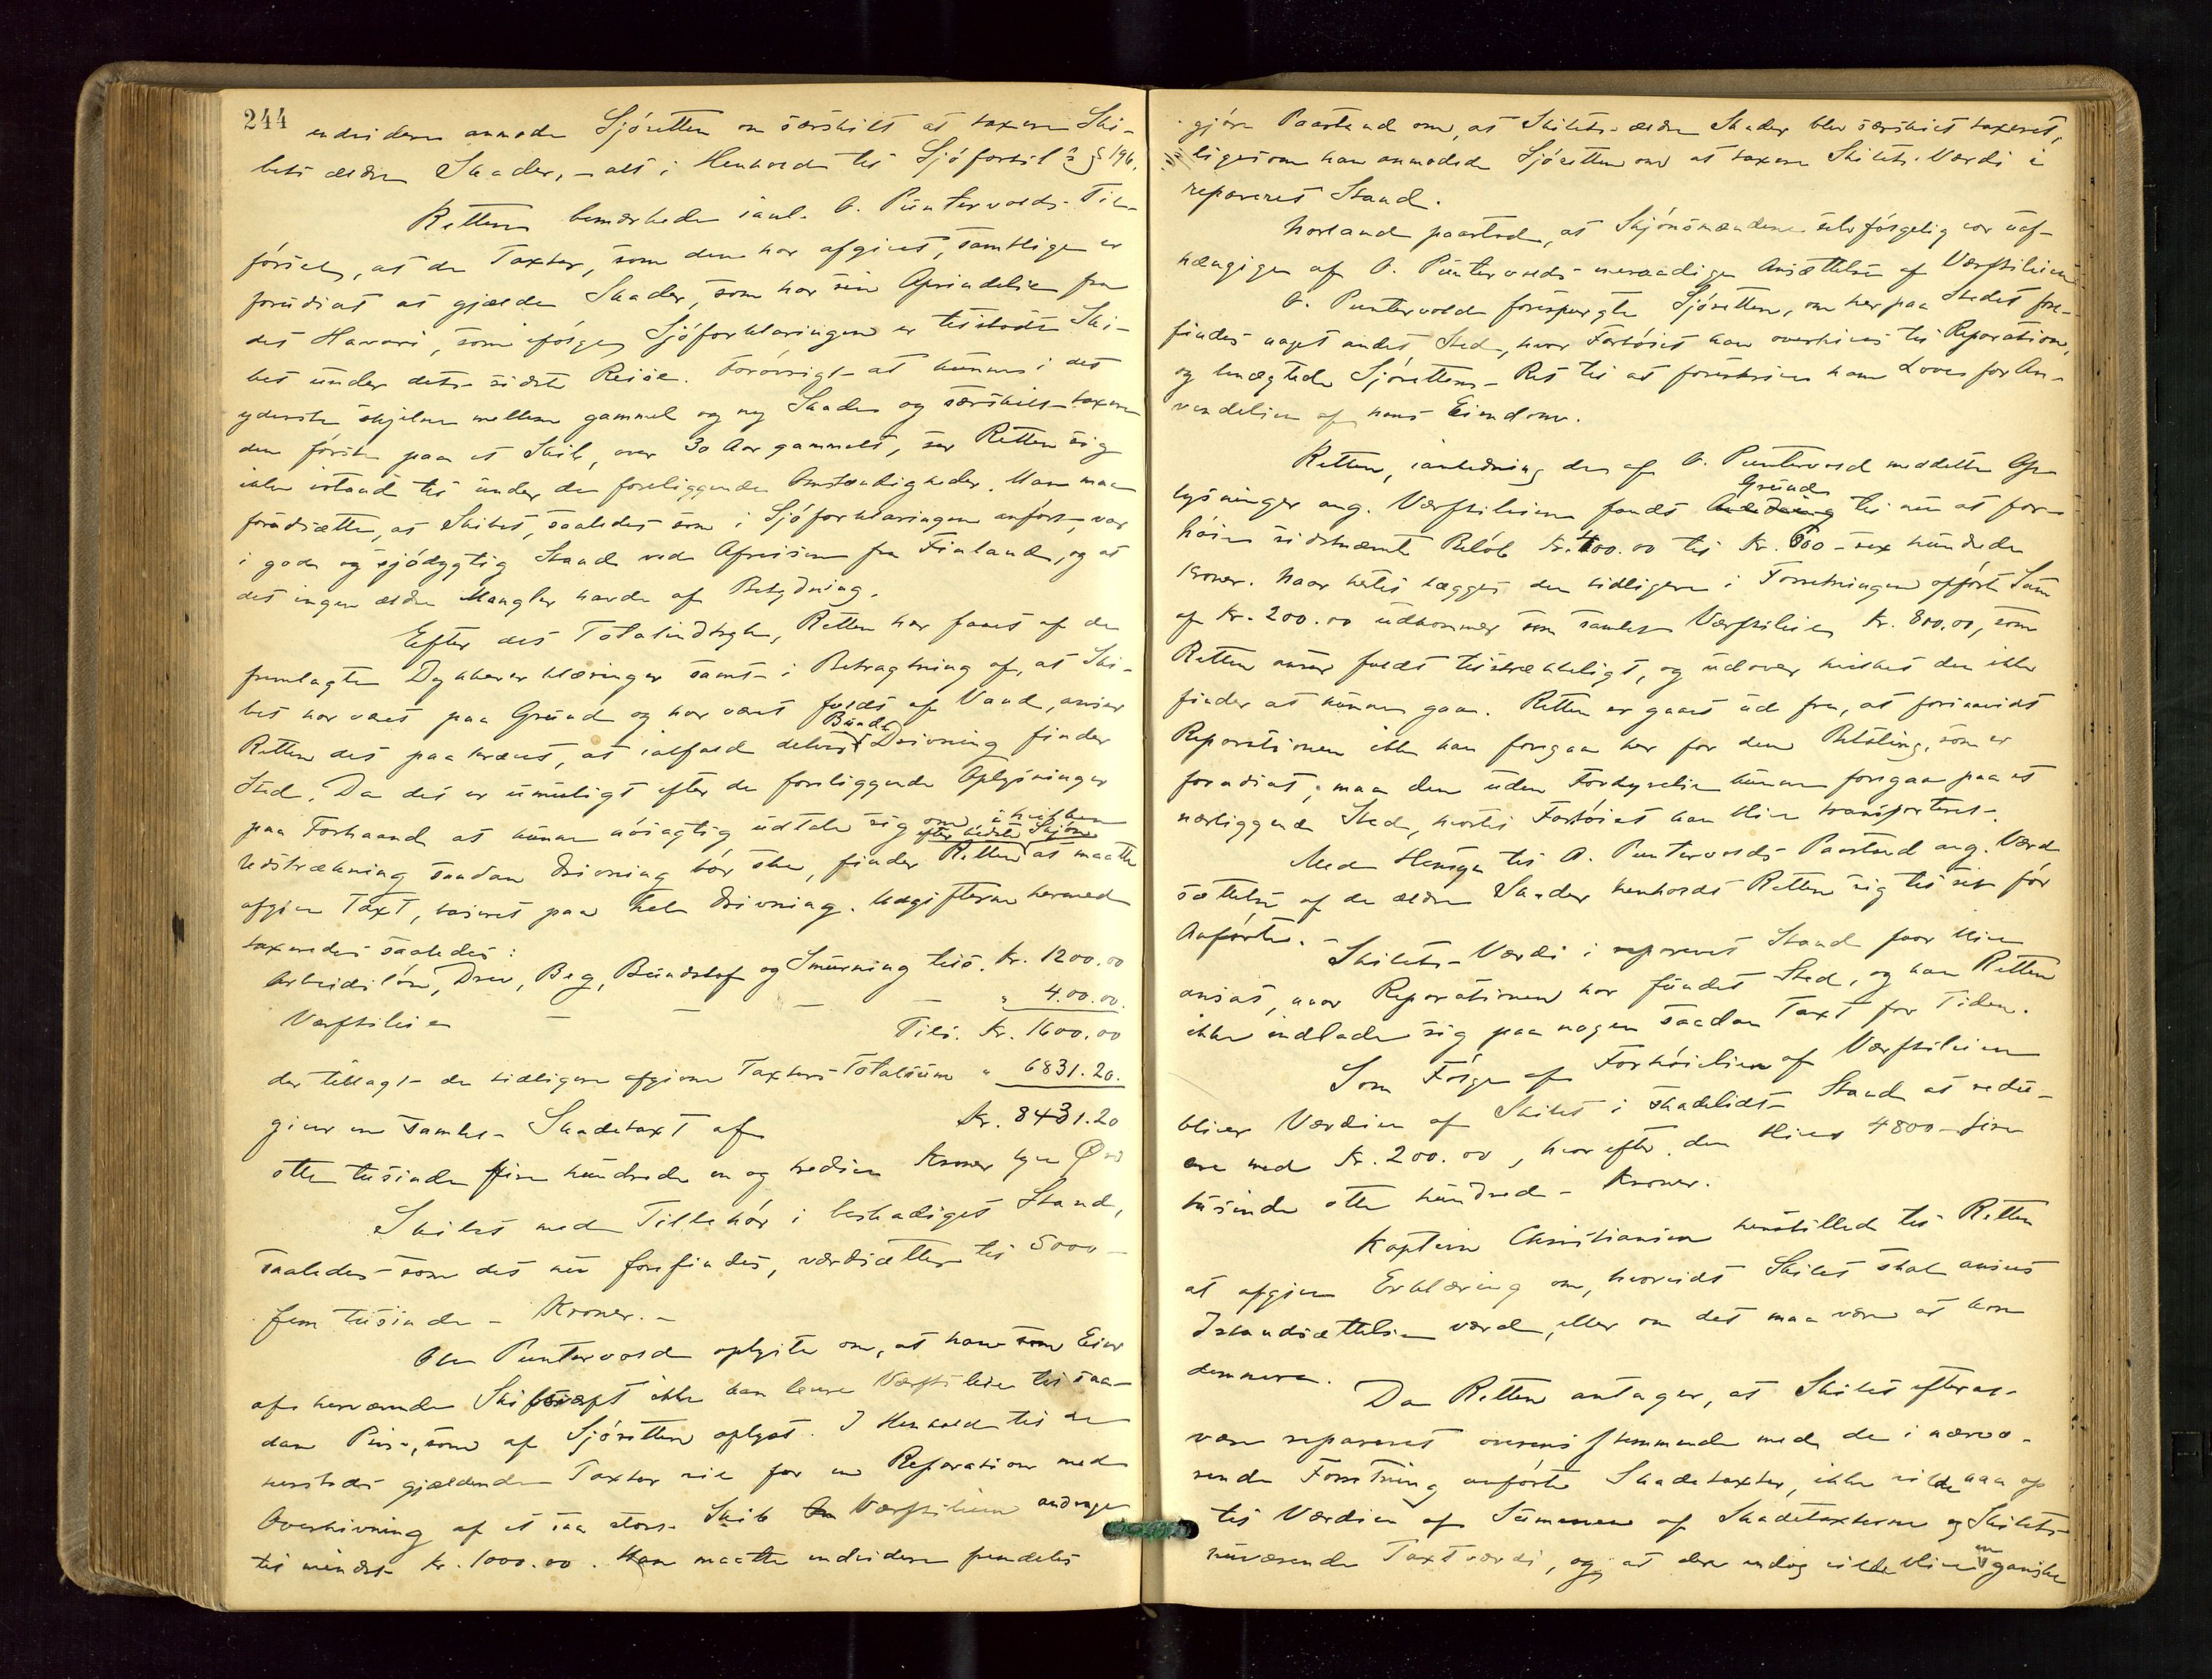 244
endvidere anmode Sjöretten om særskilt at taxere Ski-
bets ældre Skader, – alt i Henhold til Sjöfartsl. § 196.
Retten bemærkede i anl. O. Puntervolds Til-
förselen, at de Taxter, som den har afgivet, samtlige er
forudsat at gjælde Skader, som har sin Oprindelse fra
det Havari, som ifölge Sjöforklaringen er tilstödt Ski-
bet under dets sidste Reise. Forövrigt at kunne i det
yderste skjelne mellem gammel og ny Skade og særskilt taxere
den förste paa et Skib, over 30 Aar gammelt, ser Retten sig
ikke istand til under de foreliggende Omstændigheder. Man maa
forudsætte, at Skibet, saaledes som i Sjöforklaringen anfört, var
i god og sjödygtig Stand ved Afreisen fra Finland, og at
det ingen ældre Mangler havde af Betydning.
Efter det Totalindtryk, Retten har faaet af de
fremlagte Dykkererklæringer samt i Betragtning af, at Ski-
bet har været paa Grund og har været fuldt af Vand, anser
Retten det paakrævet, at ialfald delvis Bund Drivning finder
Sted. Da det er umuligt efter de foreliggende Oplysninger
paa Forhaand at kunne nöiagtig udtale sig om, i hvilken
Udstrækning saadan Drivning bör ske, finder Retten efter bedste Skjön at maatte
afgive Taxt, baseret paa hel Drivning. Udgifterne hermed
taxeredes saaledes:
Arbeidslön, Drev, Beg, Bundstof og Smurning tils. Kr. 1200.00
Værftsleie – – – – " 400.00.
Tils. Kr. 1600.00
der tillagt de tidligere afgivne Taxters Totalsum " 6831.20.
giver en samlet Skadetaxt af Kr. 8431.20
otte tusinde fire hundrede en og tredive Kroner tyve Öre
Skibet med Tilbehör i beskadiget Stand,
saaledes som det nu forefindes, værdsættes til 5000 –
fem tusinde – Kroner. –
O. Puntervold oplyste om, at han som Eier
af herværende Skibsværft ikke kan levere Værftsleie til saa-
dan Pris, som af Sjöretten oplyst. I Henhold til de
hersteds gjældende Taxter vil for en Reparation med
Overhivning af et saa stort Skib Værftsleien andrage
til mindst Kr. 1000.00. Han maatte endvidere fremdeles
gjöre Paastand om, at Skibets ældre Skader blev særskilt taxeret,
ligesom han anmodede Sjöretten om at taxere Skibets Værdi i
repareret Stand.
Norland paastod, at Skjönsmændene selvfölgelig var uaf-
hængige af O. Puntervolds Ansættelse af Værftsleien.
O. Puntervold forespurgte Sjöretten, om her paa Stedet fore-
findes noget andet Sted, hvor Fartöiet kan overhives til Reparation,
og benægtede Sjörettens Ret til at foreskrive ham Love for An-
vendelsen af hans Eiendom.
Retten, i anledning de af O. Puntervold meddelte Op-
lysninger ang. Værftsleien fandt Grund til nu at for-
höie sidstnævnte Belöb Kr. 400.00 til Kr. 600 – sex hundrede
Kroner. Naar hertil lægges den tidligere i Forretningen opförte Sum
af Kr. 200.00 udkommer som samlet Værftsleie Kr. 800.00, som
Retten anser fuldt tilstrækkeligt, og udover hvilket den ikke
finder at kunne gaa. Retten er gaaet ud fra, at forsaavidt
Reparationen ikke kan foregaa her for den Betaling, som er
forudsat, maa den uden Fordyrelse kunne foregaa paa et
nærliggende Sted, hvortil Fartöiet kan blive transporteret.
Med Hensyn til O. Puntervolds Paastand ang. Værd-
sættelse af de ældre Skader henholdt Retten sig til det för
Anförte. – Skibets Værdi i repareret Stand faar blive
ansat, naar Reparationen har fundet Sted, og kan Retten
ikke indlade sig paa nogen saadan Taxt for Tiden.
Som Fölge af Forhöielsen af Værftsleien
bliver Værdien af Skibet i skadelidt Stand at redu-
cere med Kr. 200.00, hvorefter den bliver 4800 – fire
tusinde otte hundred – Kroner.
Kaptein Christiansen henstillede til Retten
at afgive Erklæring om, hvorvidt Skibet skal ansees
Istandsættelse værd, eller om det maa være at kon-
demnere.
Da Retten antager, at Skibet efter at
være repareret overensstemmende med de i nærvæ-
rende Forretning anförte Skadetaxter, ikke vilde naa op
til Værdien af Summen af Skadetaxterne og Skibets
nuværende Taxtværdi, og at der endog vilde blive en ganske